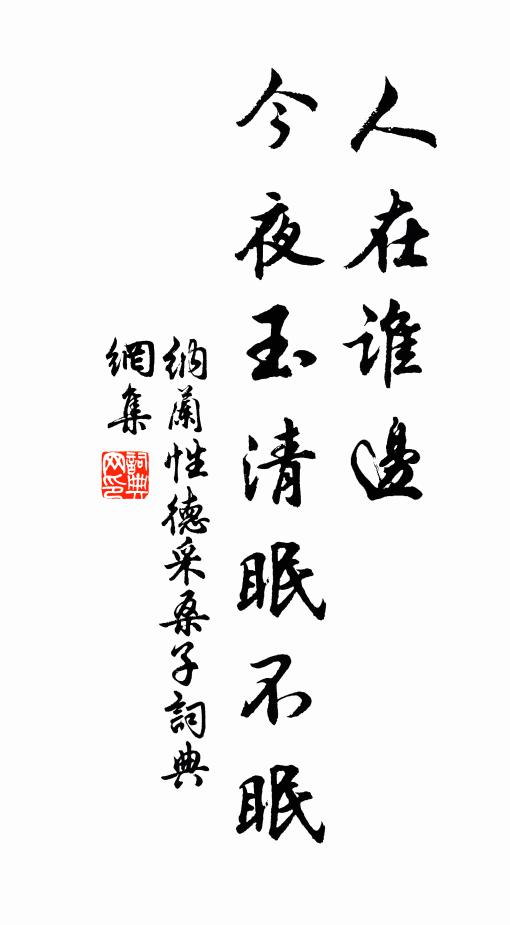 人在誰邊
今夜玉清眠不眠
納蘭性德采桑子詞典
網集
詞典網印